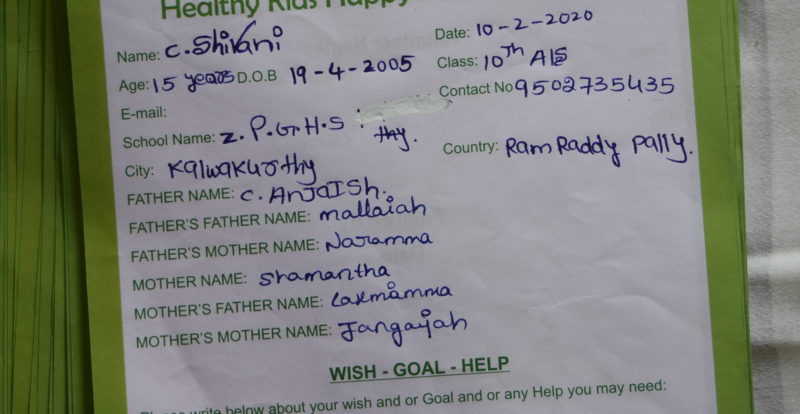 Healthy Kids Happy
Name: C. Shivani Date: 10-2-2020
Age: 15 years D.O.B 19-4-2005 Class: 10th A/S
E-mail: Contact No 9502735435
School Name: Z.P.G.H.S : thy.
City: Kalwakurthy Country: Ram Raddy pally.
FATHER NAME: C. AnJaISh.
FATHER'S FATHER NAME: mallaiah
FATHER'S MOTHER NAME: Naramma
MOTHER NAME: Shamantha
MOTHER'S FATHER NAME: Laxmamma
MOTHER'S MOTHER NAME: Jangaiah
WISH - GOAL - HELP
write below about your wish and or Goal and or any Help you may need: